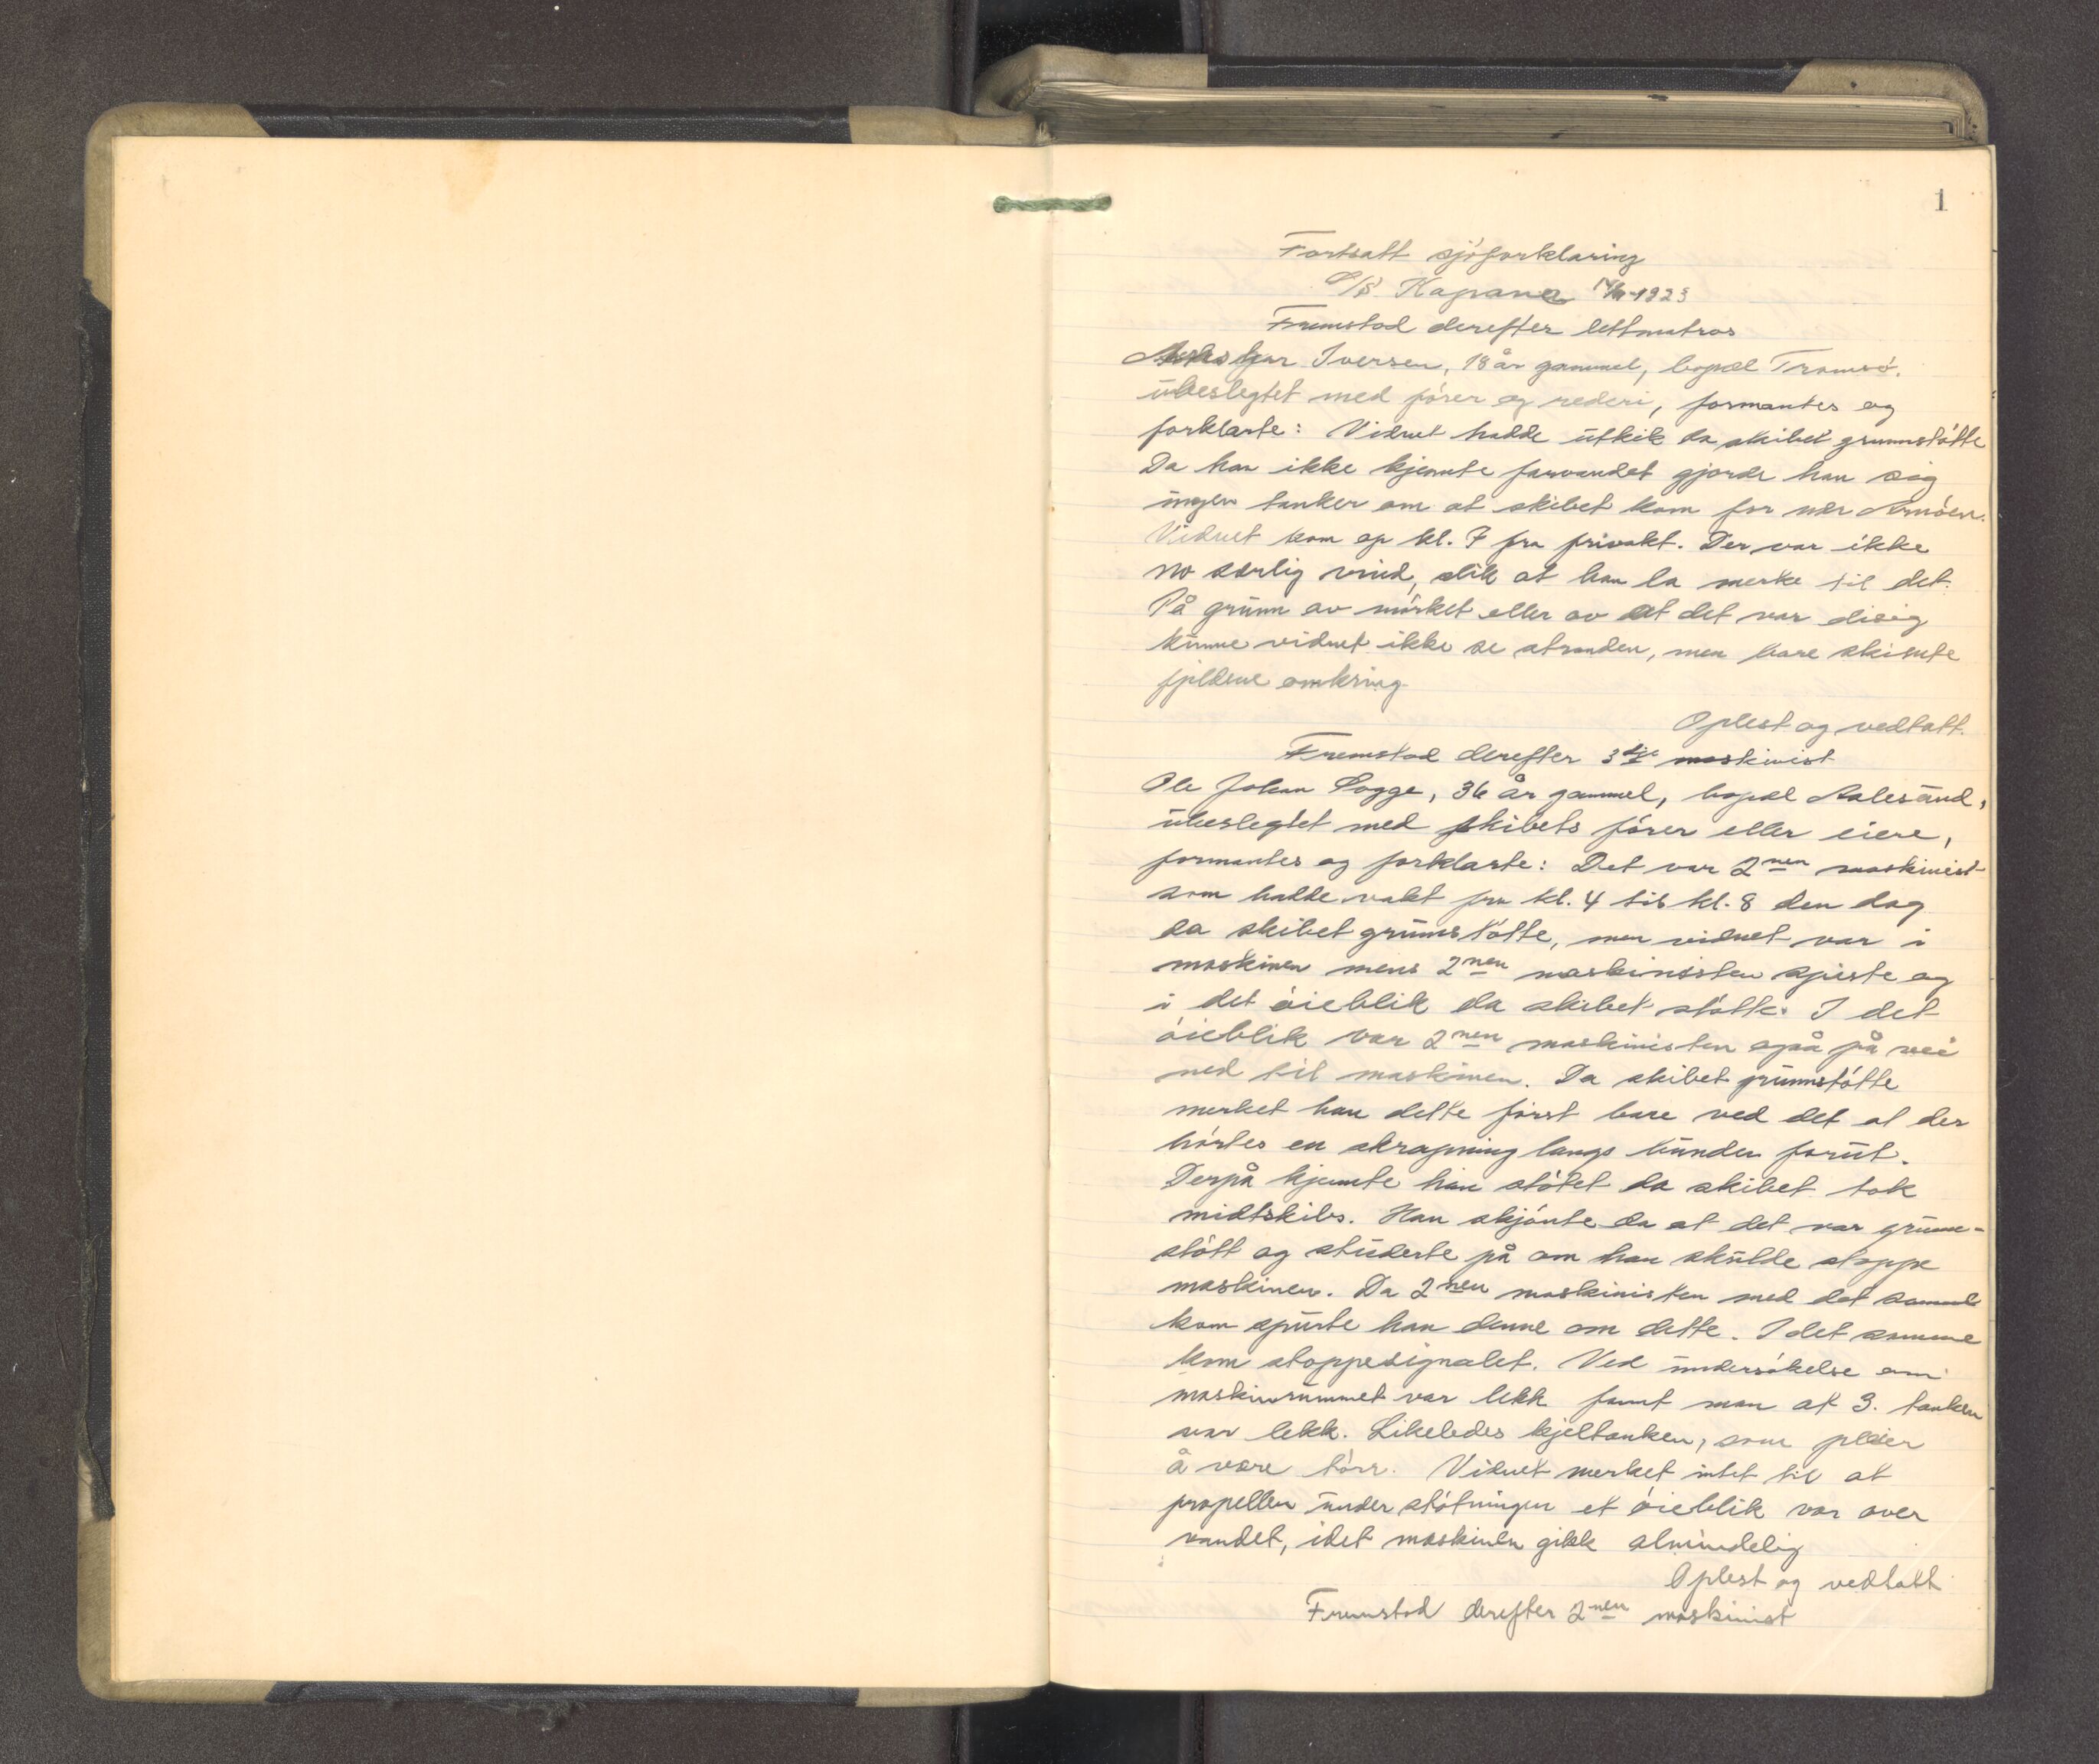 1
Fortsatt sjøforklaring
S/S Kaprana 1923
Fremstod derefter lettmatros
Iversen, 18 år gammel, bopæl Tromsö.
ubeslegtet med förer og rederi, formantes og
forklarte: Vidnet hadde utkik da skibet grunnstötte
Da han ikke kjennte farvandet gjorde han sig
ingen tanker om at skibet kom for nær Arnöen.
Vidnet kom op kl. 7 fra frivakt. Der var ikke
no særlig vind, slik at han la merke til det.
På grunn av mörket eller av at det var disig
kunne vidnet ikke se stranden, men bare skimte
fjeldene omkring.
Oplest og vedtatt.
Fremstod derefter 3dje maskinist
Ole Johan Sogge, 36 år gammel, bopæl Aalesund,
ubeslegtet med skibets förer eller eiere,
formantes og forklarte: Det var 2nen maskinist
som hadde vakt fra kl. 4 til kl. 8 den dag
da skibet grunnstötte, men vidnet var i
maskinen mens 2nen maskinisten spiste og
i det öieblik da skibet stötte. I det
öieblik var 2nen maskinisten også på vei
ned til maskinen. Da skibet grunnstötte
merket han dette först bare ved det at der
hörtes en skrapning langs bunden forut.
Derpå kjennte han stötet da skibet tok
midtskibs. Han skjönte da at det var grunn-
stött og studerte på om han skulde stoppe
maskinen. Da 2nen maskinisten med det samme
kom spurte han denne om dette. I det samme
kom stoppesignalet. Ved undersökelse om
maskinrummet var lekk fant man at 3. tanken
var lekk. Likeledes kjeltanken, som pleier
å være törr. Vidnet merket intet til at
propellen under stötningen et öieblik var over
vandet, idet maskinen gikk almindelig
Oplest og vedtatt
Fremstod derefter 2nen maskinist